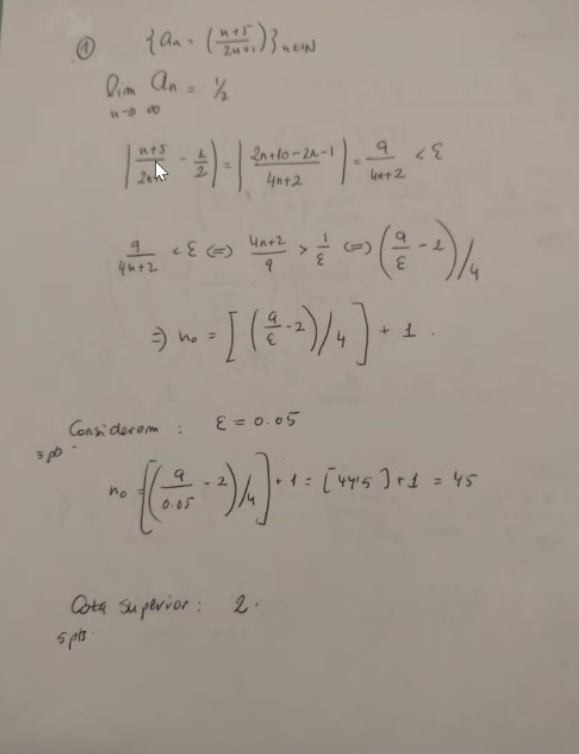 ① {an = (n+5/2n+1)}n∈IN
lim an = 1/2
n→∞
|n+5/2n+1 - 1/2| = |2n+10-2n-1/4n+2| = 9/4n+2 < ε
9/4n+2 < ε ⟺ 4n+2/9 > 1/ε ⟺ (9/ε - 2)/4
⇒ n₀ = [(9/ε - 2)/4] + 1.
Considerem : ε = 0.05
n₀ = [(9/0.05 - 2)/4] + 1 = [44'5] + 1 = 45
Cota superior : 2.
5 pts.